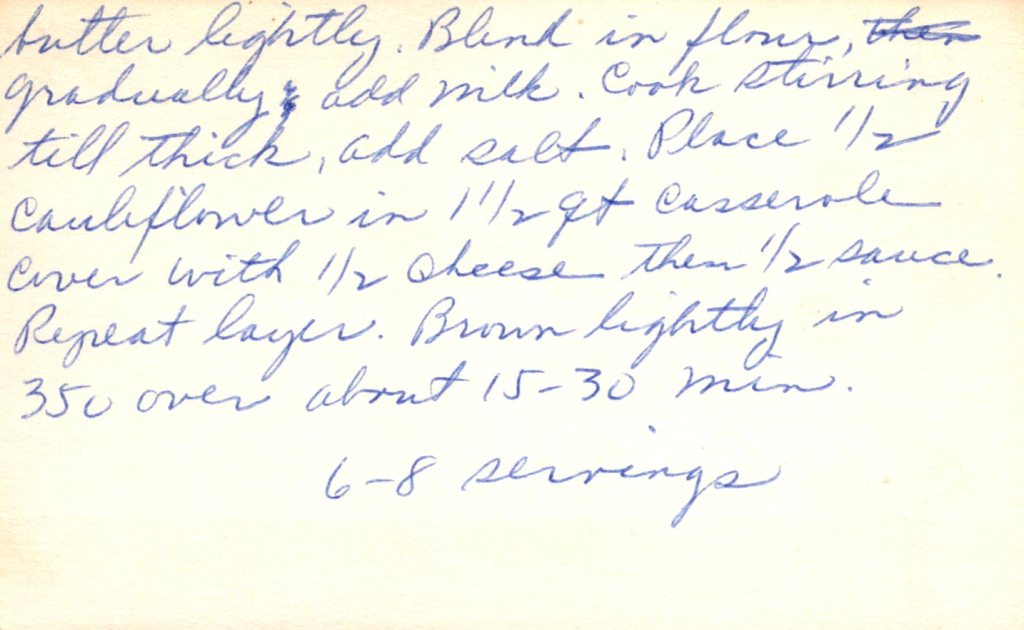 butter lightly. Blend in flour, then
gradually, add milk. Cook stirring
till thick, add salt. Place 1/2
cauliflower in 1 1/2 qt casserole
cover with 1/2 cheese then 1/2 sauce.
Repeat layer. Brown lightly in
350 oven about 15-30 min.
6-8 servings